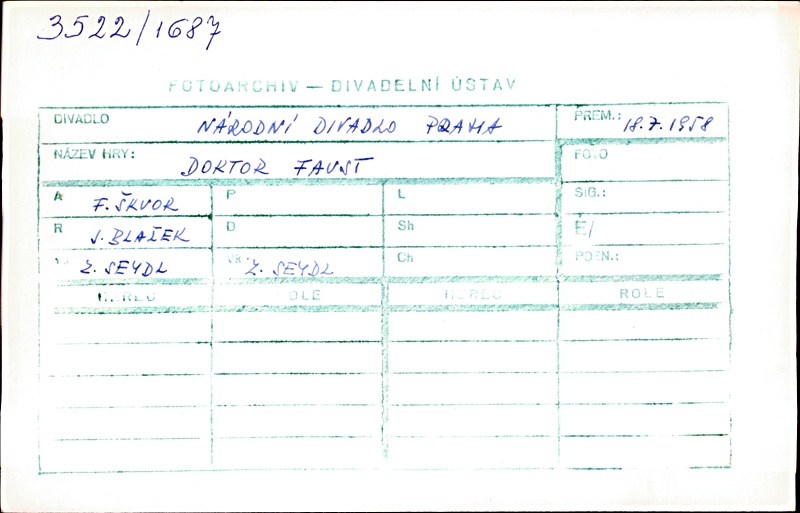 3522/1687
FOTOARCHIV — DIVADELNÍ ÚSTAV
DIVADLO NÁRODNÍ DIVADLO PRAHA PREM.: 18.7.1958
NÁZEV HRY: DOKTOR FAUST FOTO
A F. ŠKVOR P L SIG.:
R J. BLAŽEK D Sh É/
Z. SEYDL Z. SEYDL Ch POZN.:
HEREC ROLE HEREC ROLE